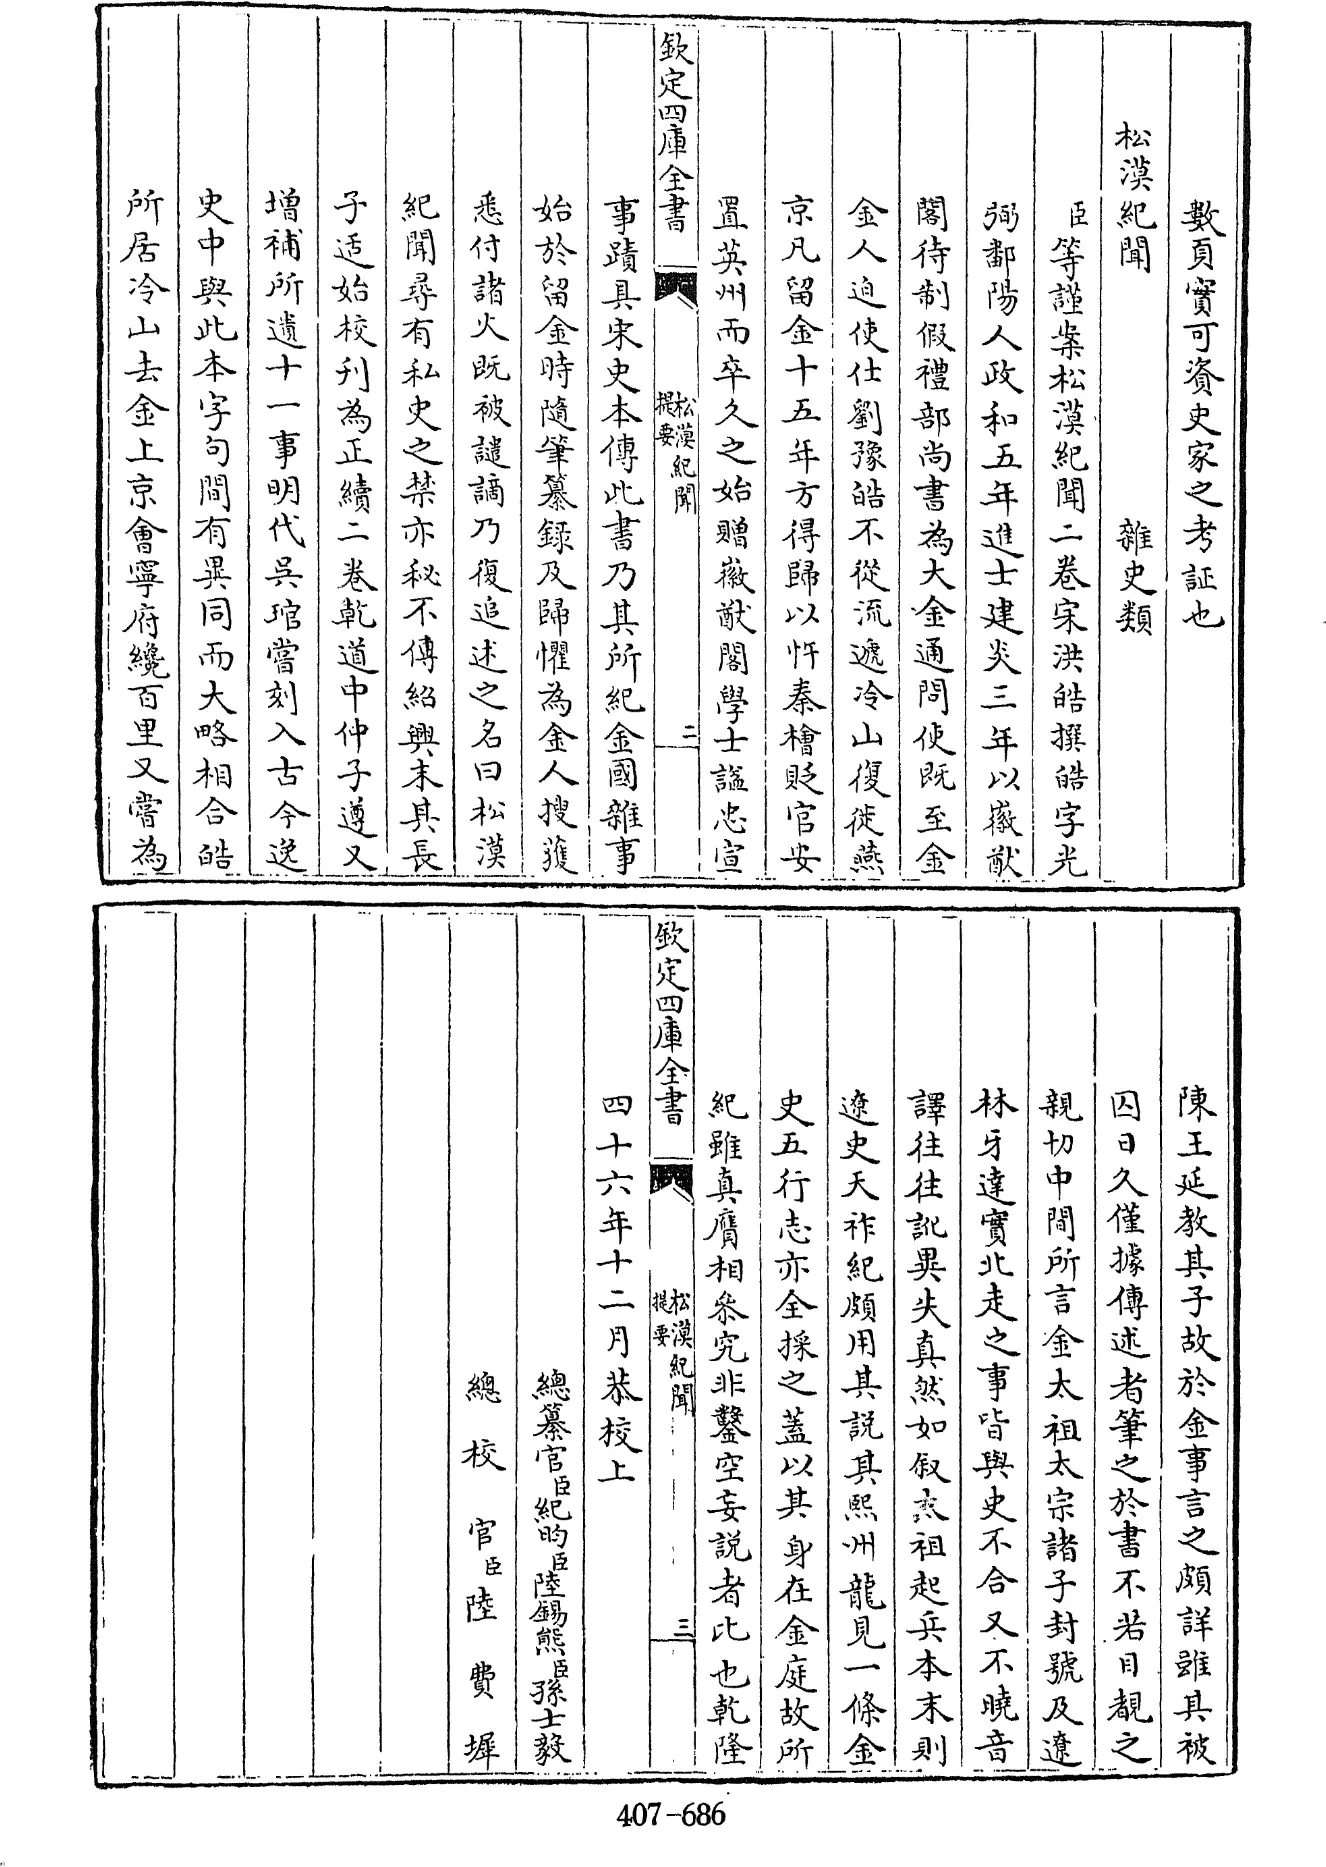 數頁實可資史家之考証也
松漠紀聞　　雜史類
臣等謹案松漠紀聞二卷宋洪皓撰皓字光
弼鄱陽人政和五年進士建炎三年以徽猷
閣待制假禮部尚書為大金通問使既至金
金人迫使仕劉豫皓不從流遞冷山復徙燕
京凡留金十五年方得歸以忤秦檜貶官安
置英州而卒久之始贈徽猷閣學士謚忠宣
欽定四庫全書
松漠紀聞
提要
二
事蹟具宋史本傳此書乃其所紀金國雜事
始於留金時隨筆纂錄及歸懼為金人搜獲
悉付諸火既被譴謫乃復追述之名曰松漠
紀聞尋有私史之禁亦秘不傳紹興末其長
子适始校刋為正續二卷乾道中仲子遵又
增補所遺十一事明代吳琯嘗刻入古今逸
史中與此本字句間有異同而大略相合皓
所居冷山去金上京會寧府纔百里又嘗為
陳王延教其子故於金事言之頗詳雖其被
囚日久僅據傳述者筆之於書不若目覩之
親切中間所言金太祖太宗諸子封號及遼
林牙達實北走之事皆與史不合又不曉音
譯往往訛異失真然如叙太祖起兵本末則
遼史天祚紀頗用其説其熙州龍見一條金
史五行志亦全採之蓋以其身在金庭故所
紀雖真贗相叅究非鑿空妄説者比也乾隆
欽定四庫全書
松漠紀聞
提要
三
四十六年十二月恭校上
總纂官臣紀昀臣陸錫熊臣孫士毅
總校官臣陸費墀
407-686